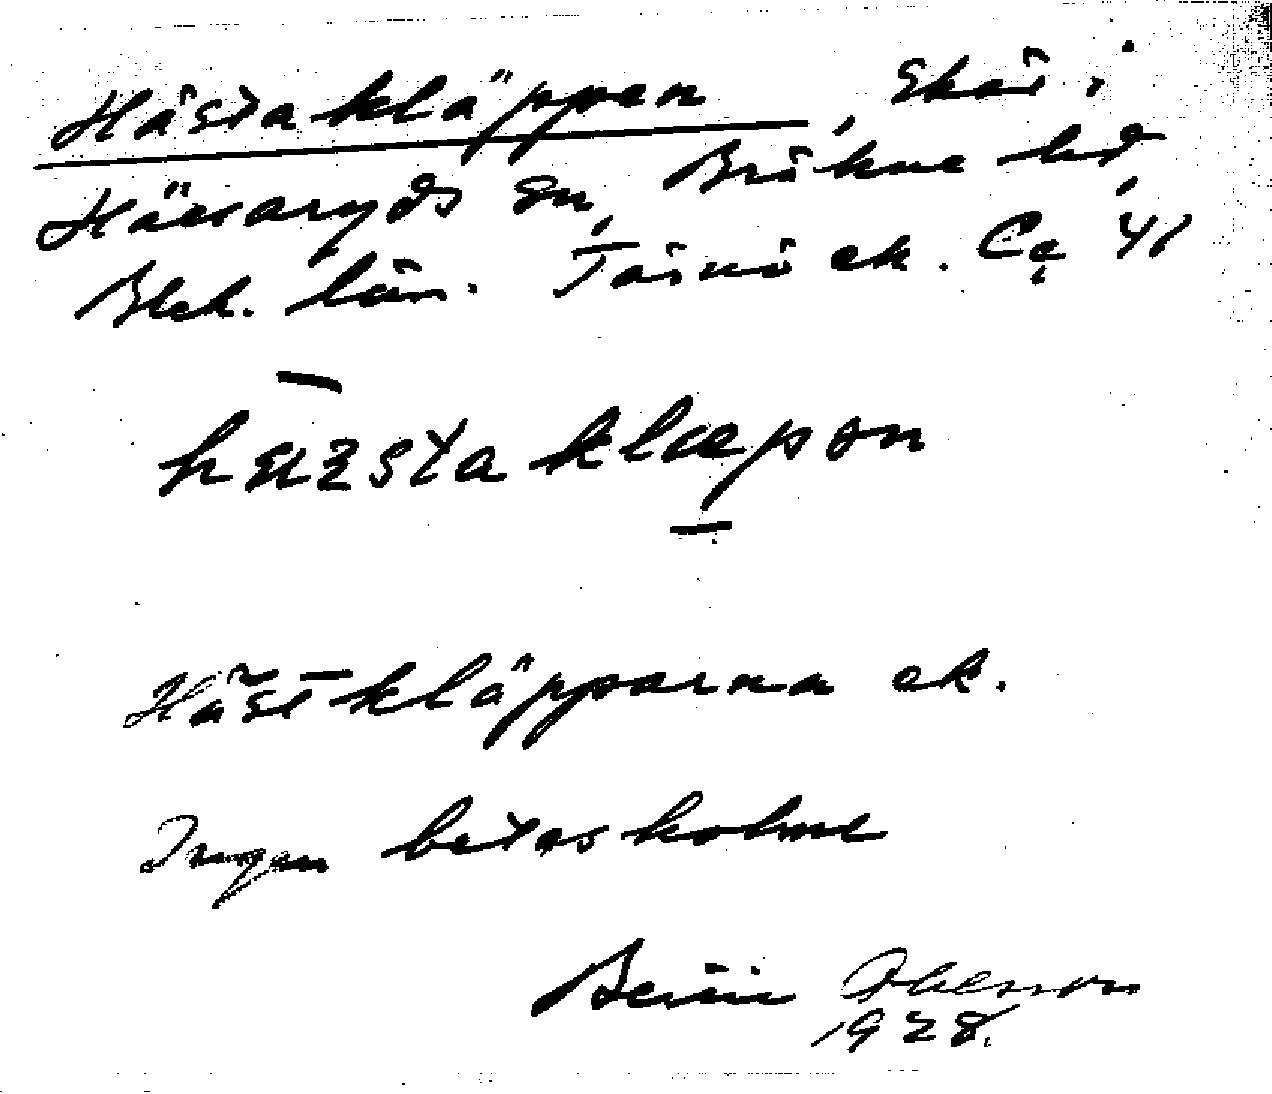 Hästakläppen, Skär i
Hällaryds sn, Bräkne hd,
Blek. län. Tärnö ek. Cc 41
hæstaklæpən
Hästkläpparna ek.
Ingen betesholme
Ohlsson
1928.